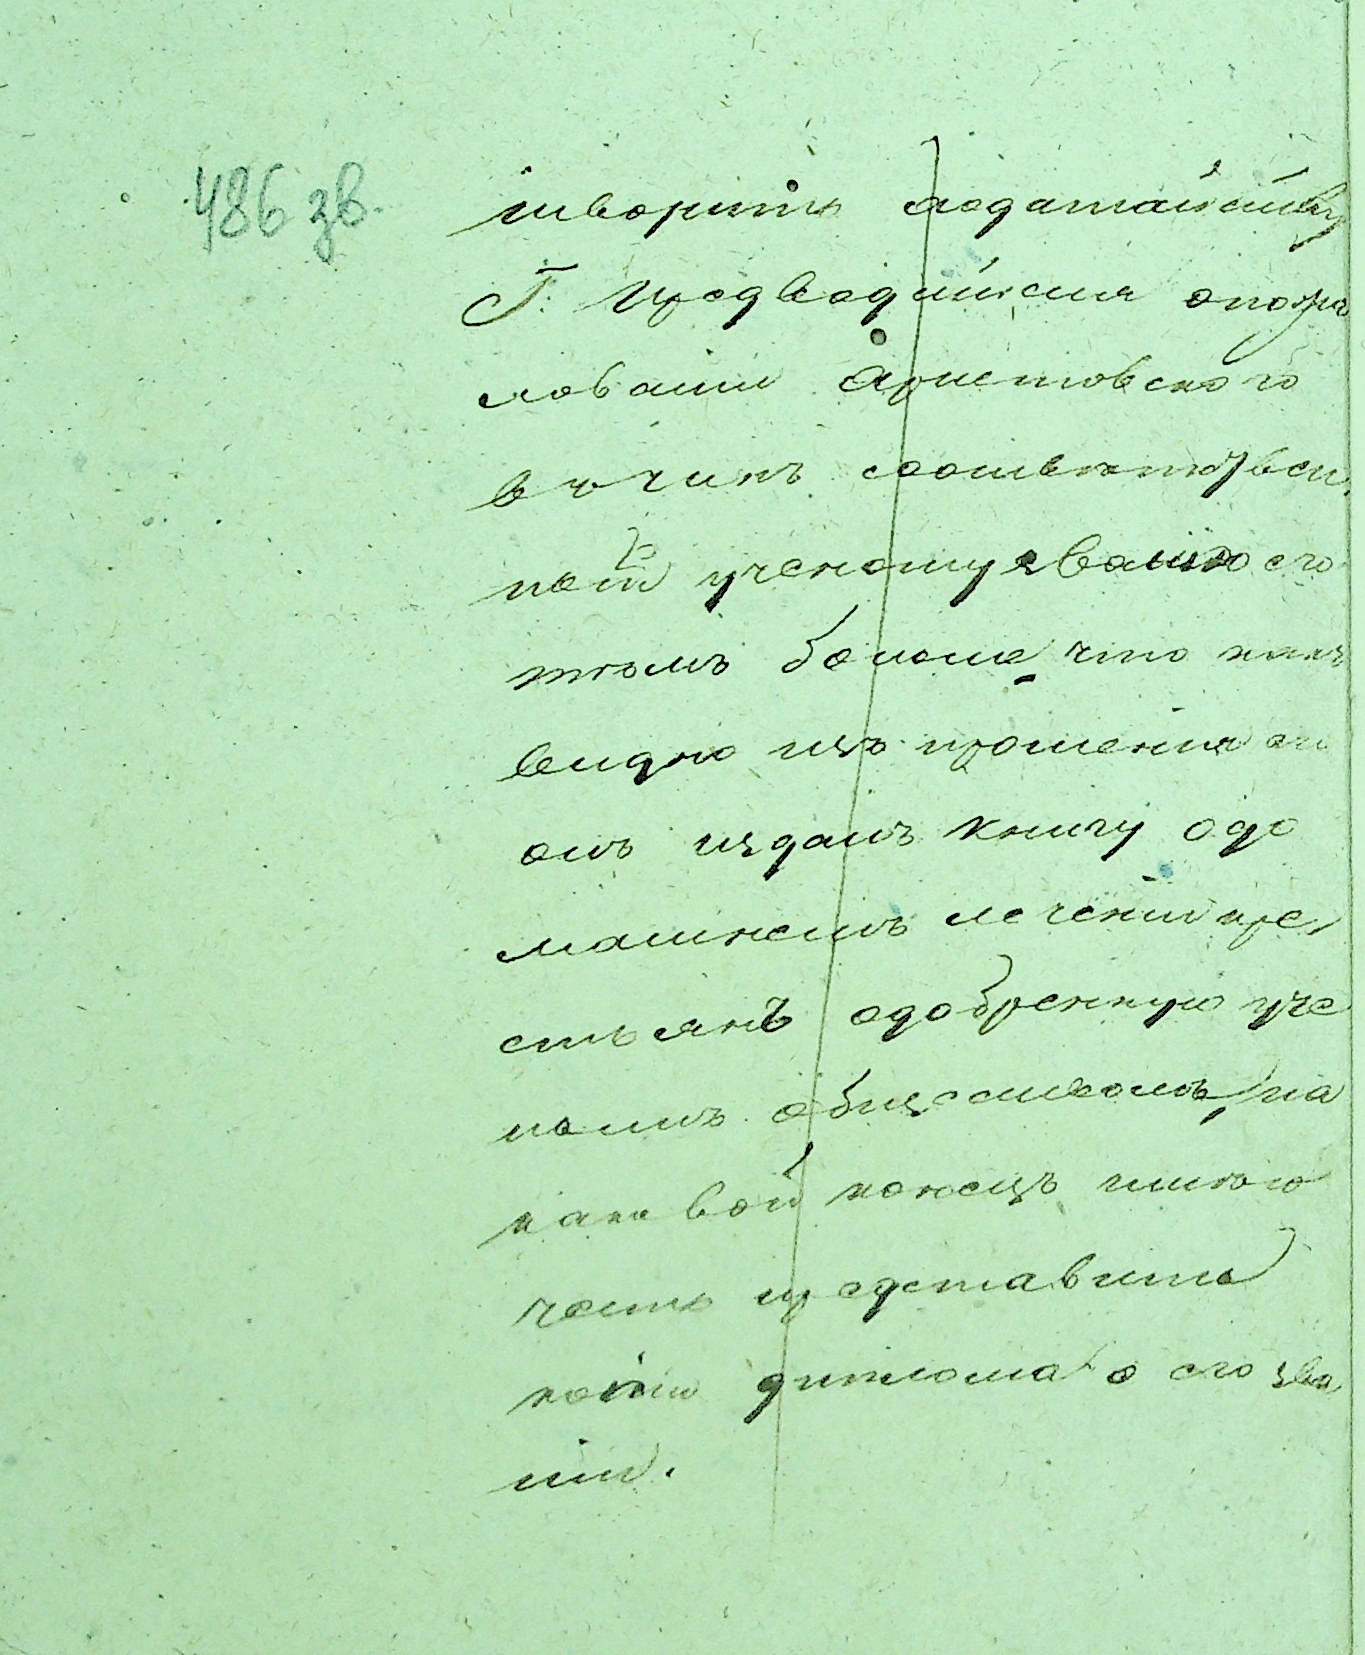 486 зв.
творить ходатайству
Г. Предводителя о пожа
ловании Аристовского
въ чинъ соответствен
ный ученому званию его
тѣмъ болѣе, что какъ
видно изъ прошения его
онъ издалъ книгу о до
машнемъ лечении кре
стьянъ одобренную уче
нымъ обществомъ, на
каковой конецъ имѣю
честь представить
копии диплома о его зва
нии.